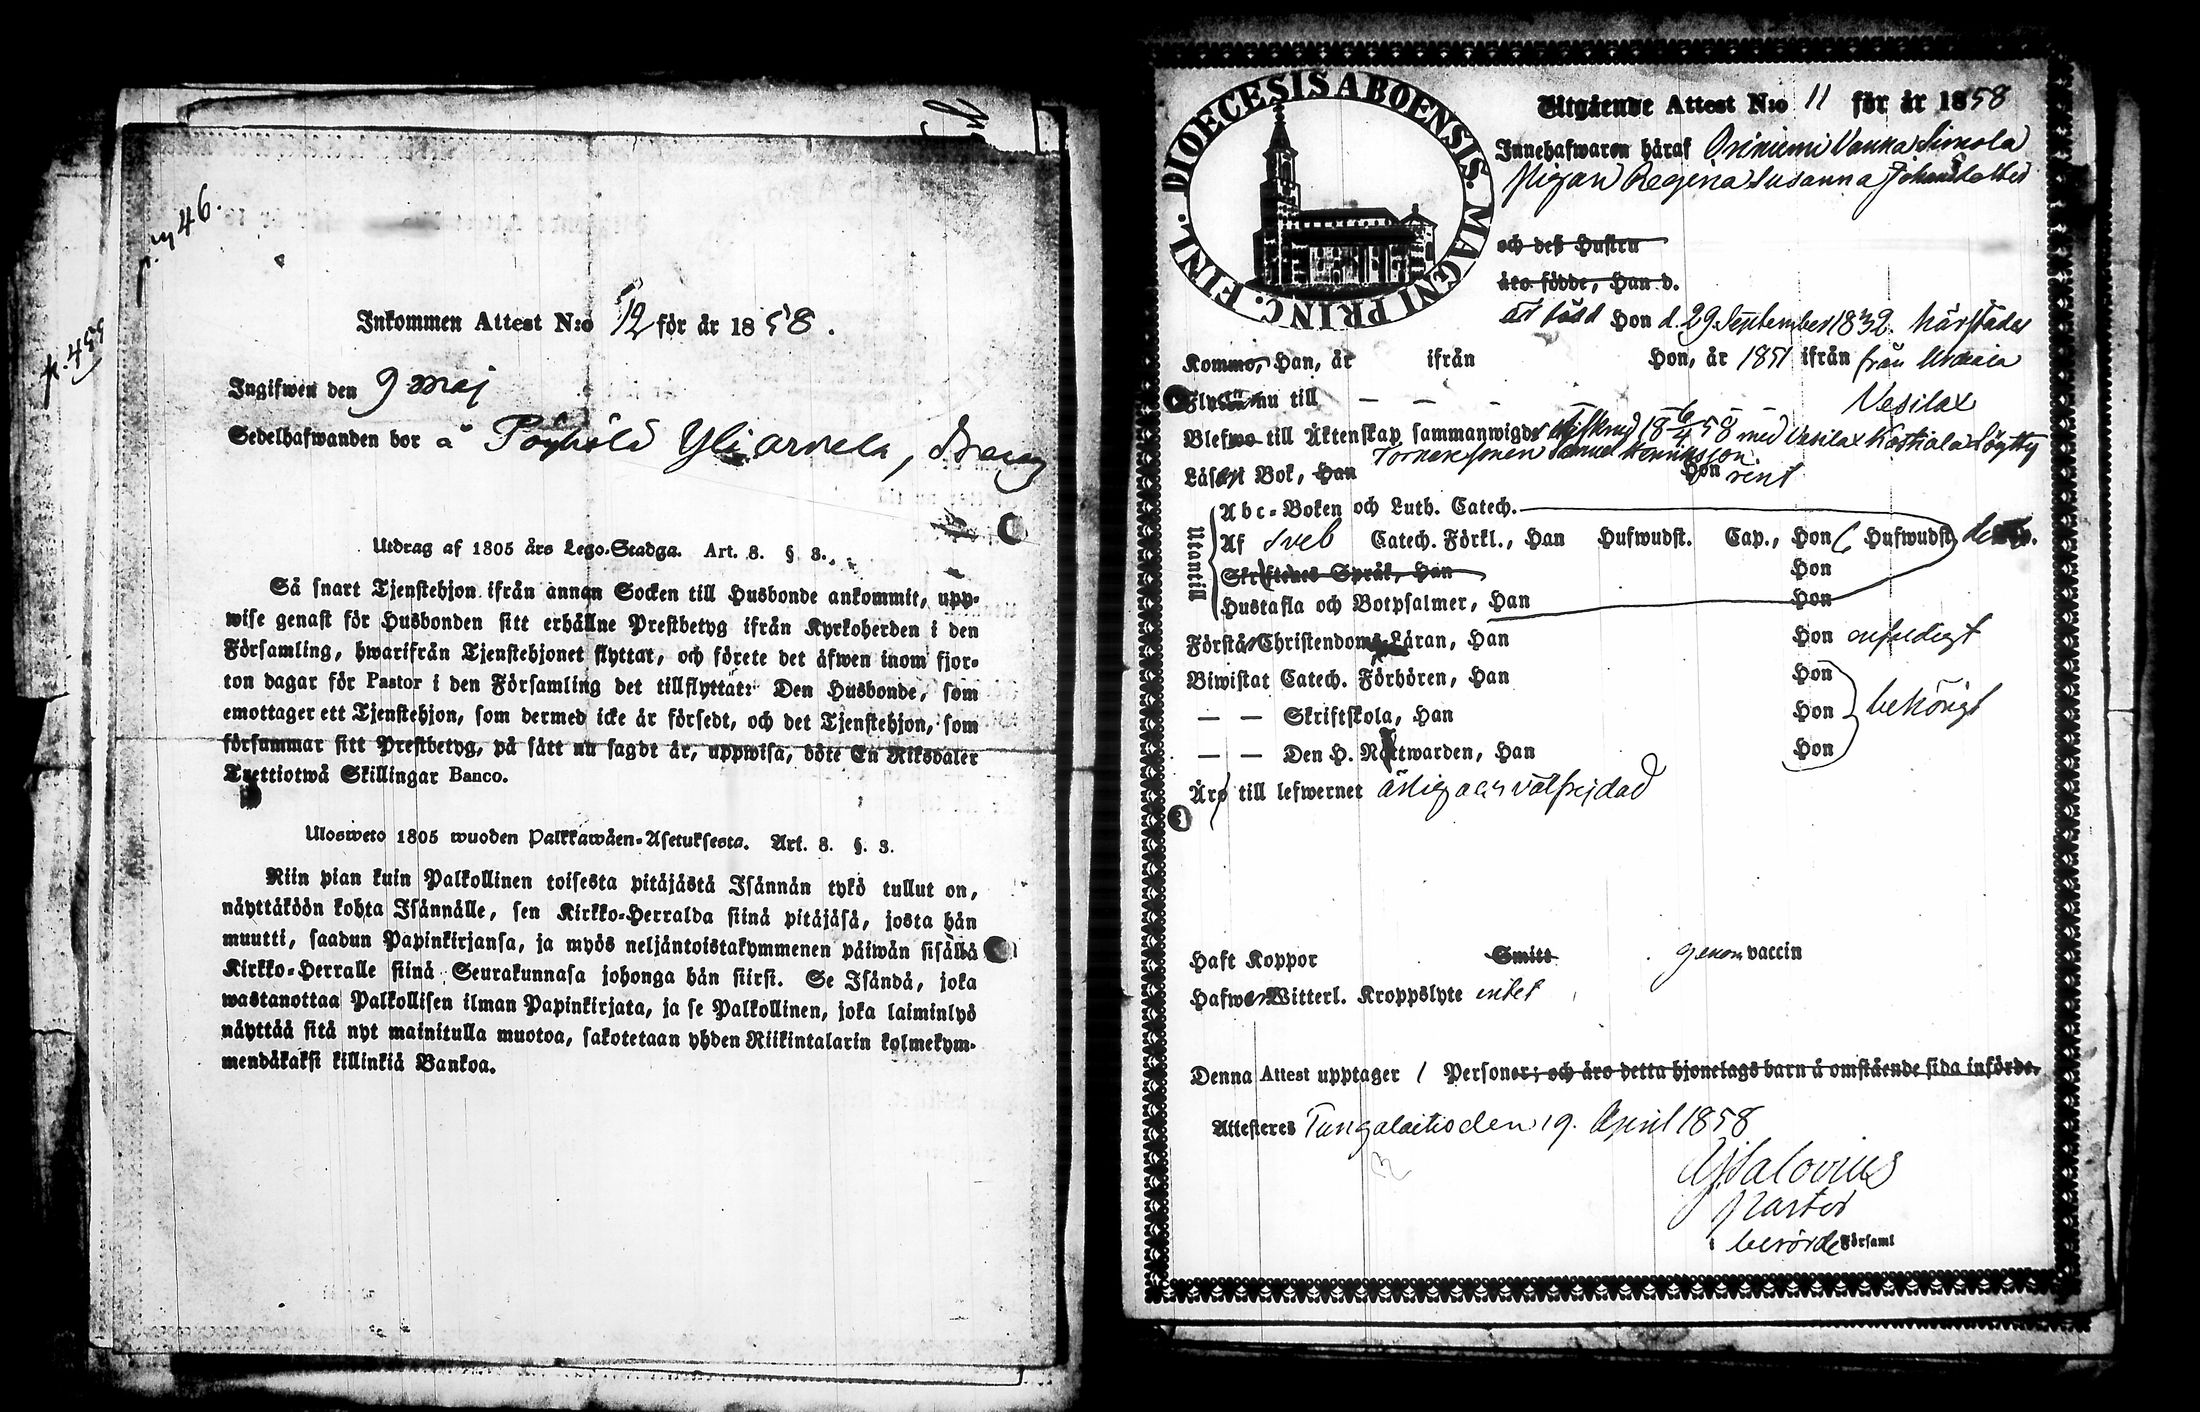 p. 46.
p. 455
Inkommen Attest N:o 12 för år 1858.
Ingifwen den 9 Maj
Sedelhafwanden bor å Pöyhölä Yli arvela,
Utdrag af 1805 års Lego-Stadga. Art. 8. § 3.
Så snart Tjenstehjon ifrån annan Socken till Husbonde ankommit, upp-
wise genast för Husbonden sitt erhållne Prestbetyg ifrån Kyrkoherden i den
Församling, hwarifrån Tjenstehjonet flyttat, och förete det äfwen inom fjor-
ton dagar för Pastor i den Församling det tillflyttat: Den Husbonde, som
emottager ett Tjenstehjon, som dermed icke är försedt, och det Tjenstehjon, som
försummar sitt Prestbetyg, på sätt nu sagdt är, uppwisa, böte En Riksdaler
Trettiotwå Skillingar Banco.
Ulosweto 1805 wuoden Palkkawäen-Asetuksesta. Art. 8. §. 3.
Niin pian kuin Palkollinen toisesta pitäjästä Isännän tykö tullut on,
näyttäköön kohta Isännälle, sen Kirkko-Herralda siinä pitäjäsä, josta hän
muutti, saadun Papinkirjansa, ja myös neljäntoistakymmenen päiwän sisällä
Kirkko-Herralle siinä Seurakunnasa johonga hän siirsi. Se Isändä, joka
wastanottaa Palkollisen ilman Papinkirjata, ja se Palkollinen, joka laiminlyö
näyttää sitä nyt mainitulla muotoa, sakotetaan yhden Riikintalarin kolmekym-
mendäkaksi killinkiä Bankoa.
DIOECESIS ABOENSIS. MAGNI PRINC. FINL.
Utgående Attest N:o 11 för år 1858
Innehafwaren häraf Onkiemi Vanha Simola
Pigan Regina Susanna Johansdotter
och deß Hustru
äro födde, Han d.
är född Hon d. 29 September 1832. härstädes
Kommo, Han, år ifrån Hon, år 1851 ifrån från Urdiala
Flytta nu till — — — — — Vesilax
Blefwo till Äktenskap sammanwigde afskned 18 6/4 58 med Vesilax Kostiala Löytty
Torpare sonen Samuel Henriksson
Läser i Bok, Han Hon rent
Utantill
Abc-Boken och Luth. Catech.
Af Sveb Catech. Förkl., Han Hufwudst. Cap., Hon 6 Hufwudst.
Skriftenes Språk, Han Hon
Hustafla och Botpsalmer, Han Hon
Förstå Christendoms-Läran, Han Hon enfaldigt
Biwistat Catech. Förhören, Han Hon
— — Skriftskola, Han Hon behörigt
— — Den H. Nattwarden, Han Hon
Äro till lefwernet ärlig och välfrejdad
Haft Koppor Smitt genom vaccin
Hafwer Witterl. Kroppslyte intet
Denna Attest upptager 1 Personer; och äro detta hjonelags barn å omstående sida införde.
Attesteres Tungalaitio den 19. April 1858
Salovius
Pastor
i berörde Församl